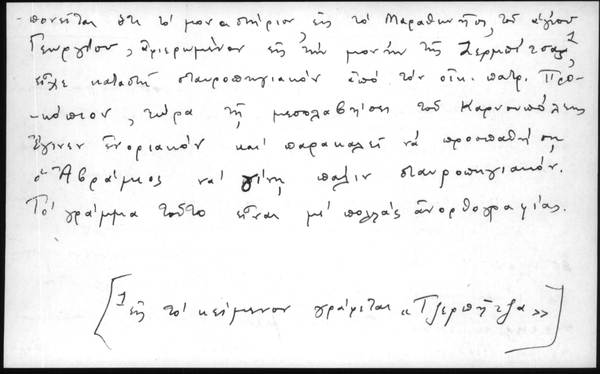 -πονεῖται ὅτι τό μοναστήριον εἰς τό Μαραθονῆσι, τοῦ ἁγίου
Γεωργίου, ἀφιερωμένον εἰς τήν μονήν τῆς Ζερμπίτσας¹,
εἶχε καταστῆ σταυροπηγιακόν ἀπό τόν οἰκ. πατρ. Προ-
-κόπιον, τώρα τῇ μεσολαβήσει τοῦ Καρυουπόλεως
ἔγινεν ἐνοριακόν καί παρακαλεῖ νά προσπαθήσῃ
ὁ Ἀβράμιος νά γίνῃ πάλιν σταυροπηγιακόν.
Τό γράμμα τοῦτο εἶναι μέ πολλάς ἀνορθογραφίας.
[¹ εἰς τό κείμενον γράφεται «Τζερπήτζα»]